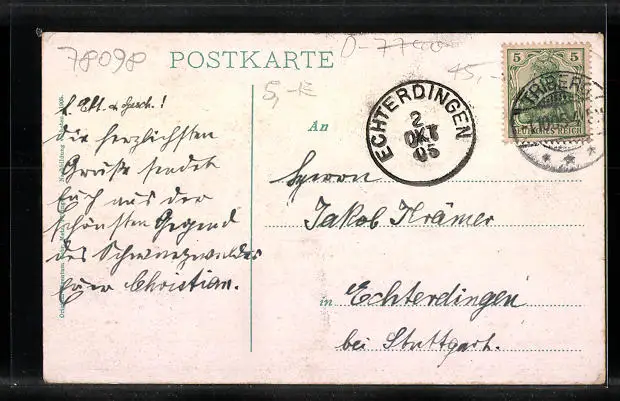 78098
POSTKARTE
0-7700
45,-
5,-
5 5
DEUTSCHES REICH
TRIBERG
ECHTERDINGEN
2
OKT
05
L. Elt. & Gesch.!
die herzlichsten
Grüße sendet
Euch aus der
schönsten Gegend
des Schwarzwaldes
Euer Christian.
An
Herrn
Jakob Krämer
in Echterdingen
bei Stuttgart.